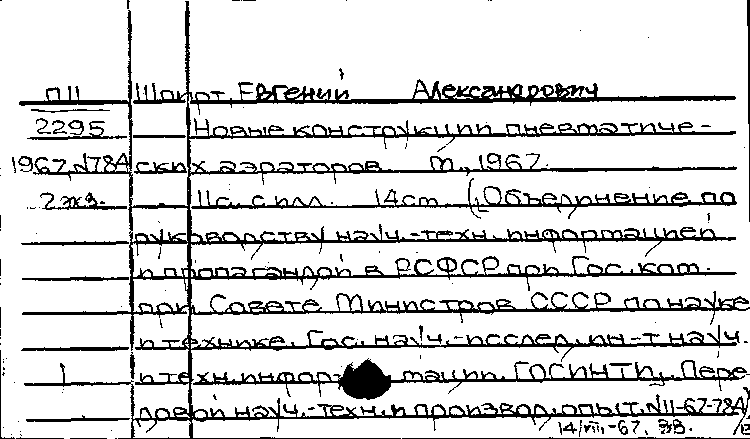 П11 Шпирт, Евгений Александрович
2295 Новые конструкции пневматиче-
1967 N784 ских аэраторов. М., 1967.
2 экз. 11с. с илл. 14см. (Объединение по
руководству науч.-техн. информацией
и пропагандой в РСФСР при Гос. ком.
при Совете Министров СССР по науке
и технике. Гос. науч.-исслед. ин-т науч.
1 и техн. информации. ГОСИНТИ). Пере
довой науч.-техн. и производ. опыт. N11-67-784/
-67,